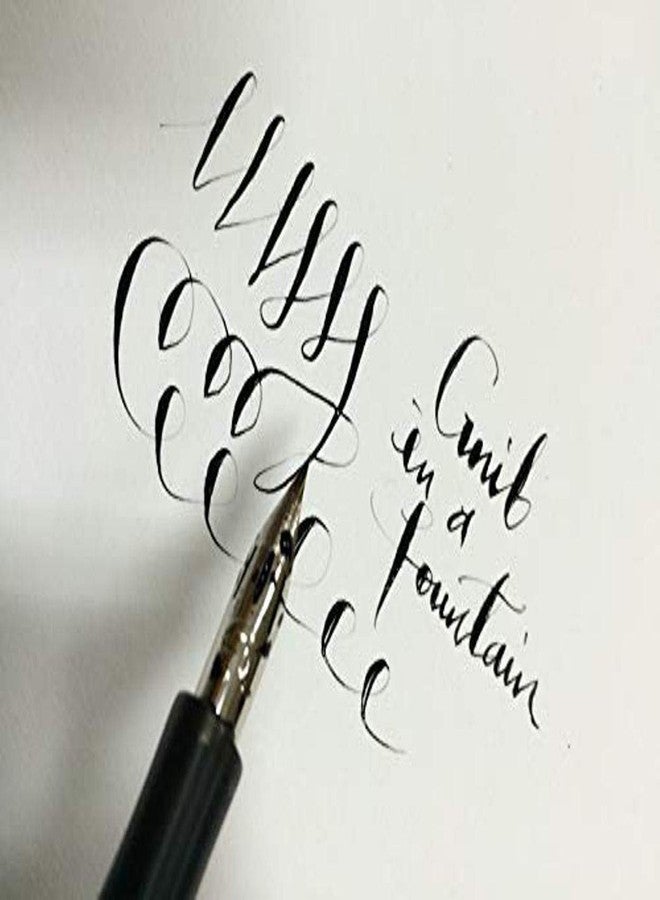 Gnib
in
a
fountain